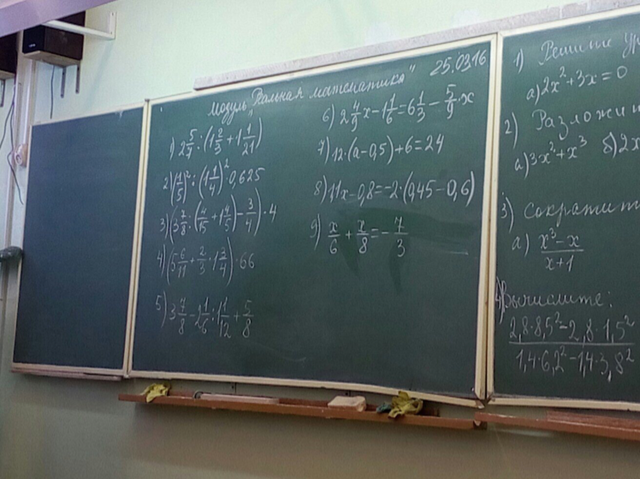 Модуль "Реальная математика" 25.03.16
1) 2 5/7 : (1 2/5 + 1 1/21)
2) (1/5)² : (1 1/4)² · 0,625
3) (3 7/8 · (4/5 + 1 4/5) - 3/4) · 4
4) (5 6/11 + 2/3 : 1 3/4) · 66
5) 3 7/8 - 2 1/6 : 1 1/12 + 5/8
6) 2 4/9 x - 1 1/6 = 6 1/3 - 5/9 · x
7) 12 · (a - 0,5) + 6 = 24
8) 1,1x - 0,8 = -2 · (0,45 - 0,6)
9) x/6 + x/8 = - 7/3
1)
а) 2x² + 3x = 0
2)
а) 3x² + x³ б) 2x
3)
а) (x³ - x)/(x + 1)
Вычислите:
(2,8 · 8,5² - 2,8 · 1,5²)/(1,4 · 6,2² - 1,4 · 3,8²)